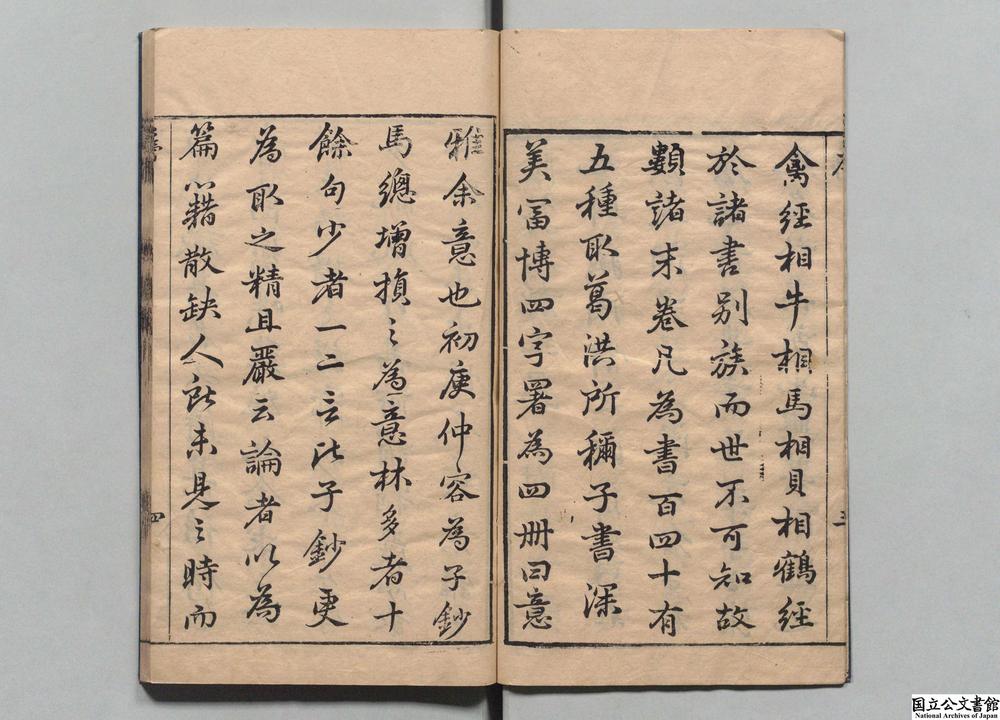 禽經相牛相馬相貝相鶴經
於諸書別族而世不可知故
類諸末卷凡為書百四十有
五種取葛洪所稱子書深
美冨博四字署為四册曰意
雅余意也初庾仲容為子鈔
馬總增損之為意林多者十
餘句少者一二言比子鈔更
為取之精且嚴云論者以為
篇籍散缺人所未見之時而
三
四
国立公文書館
National Archives of Japan